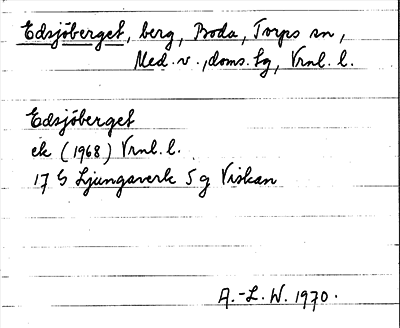 Edsjöberget, berg, Boda, Torps sn,
Med. v., doms. tg, Vrnl. l.
Edsjöberget
ek (1968) Vrnl. l.
17 G Ljungaverk 5 g Viskan
A.-L. W. 1970.